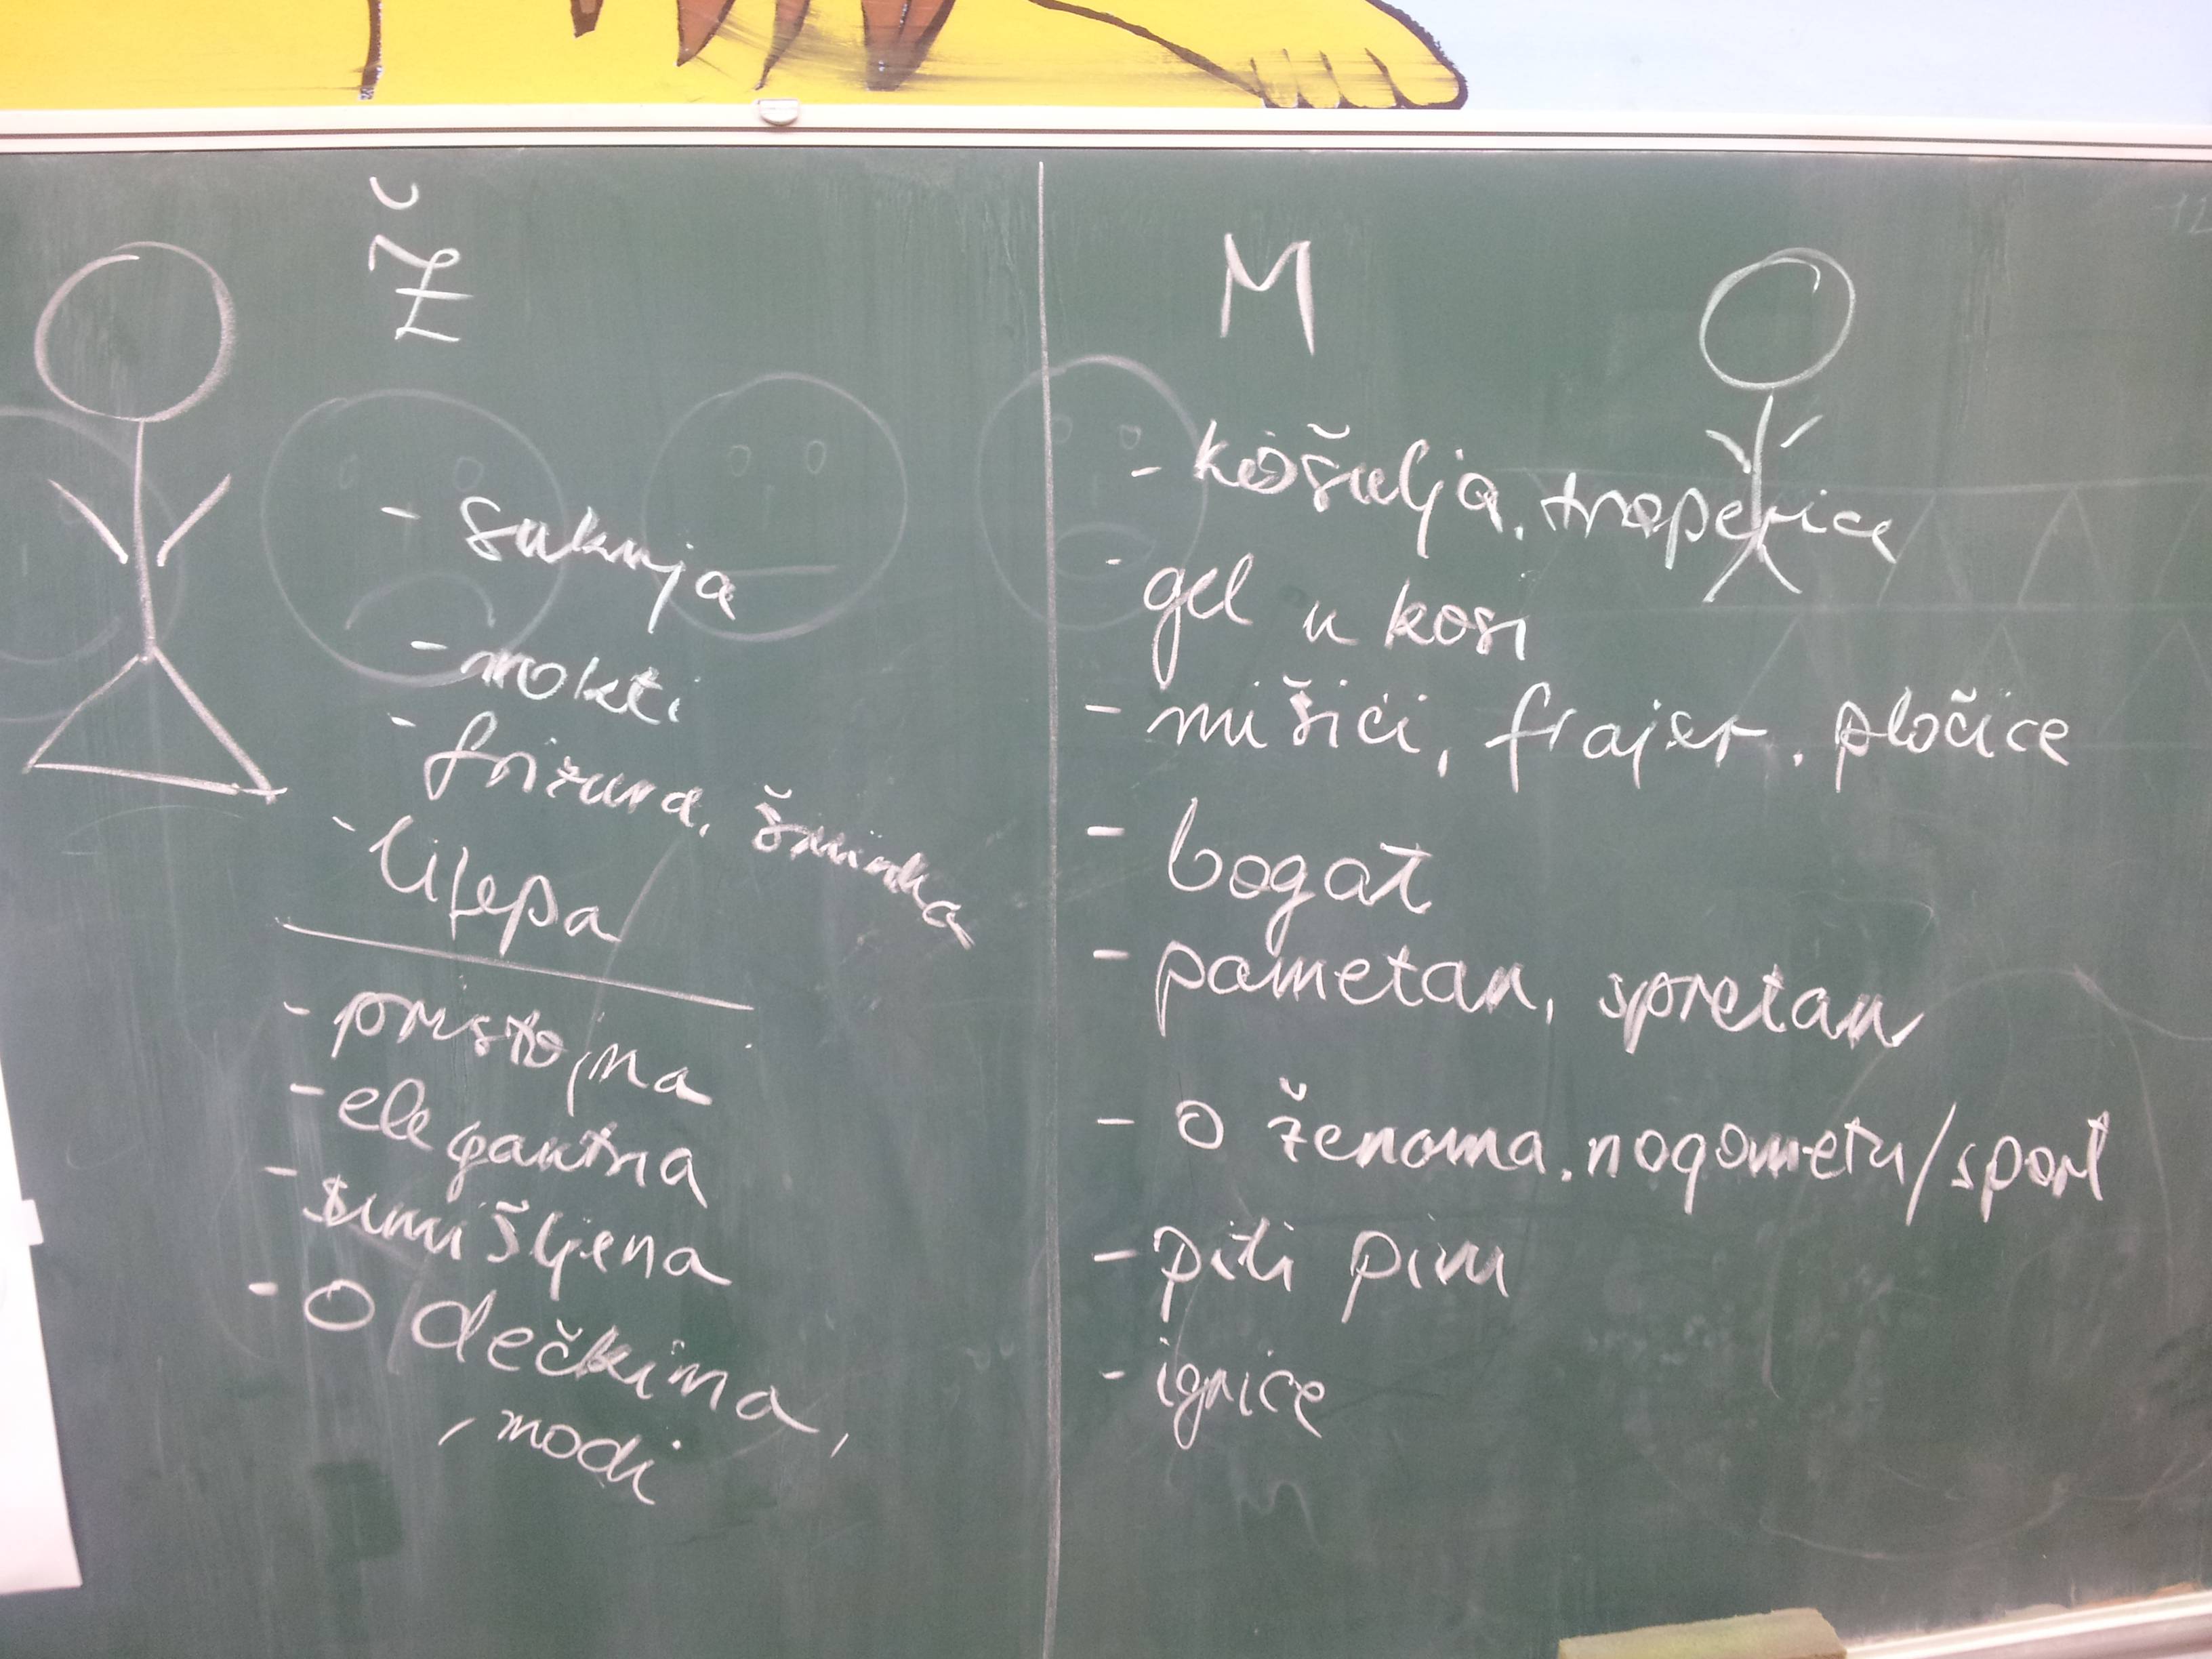 Ž
- suknja
- nokti
- frizura, šminka
- lijepa
- pristojna
- elegantna
- umišljena
- o dečkima,
, modi
M
- košulja, traperice
- gel u kosi
- mišići, frajer, pločice
- bogat
- pametan, spretan
- o ženama, nogometu/sport
- piti pivu
- igrice
12